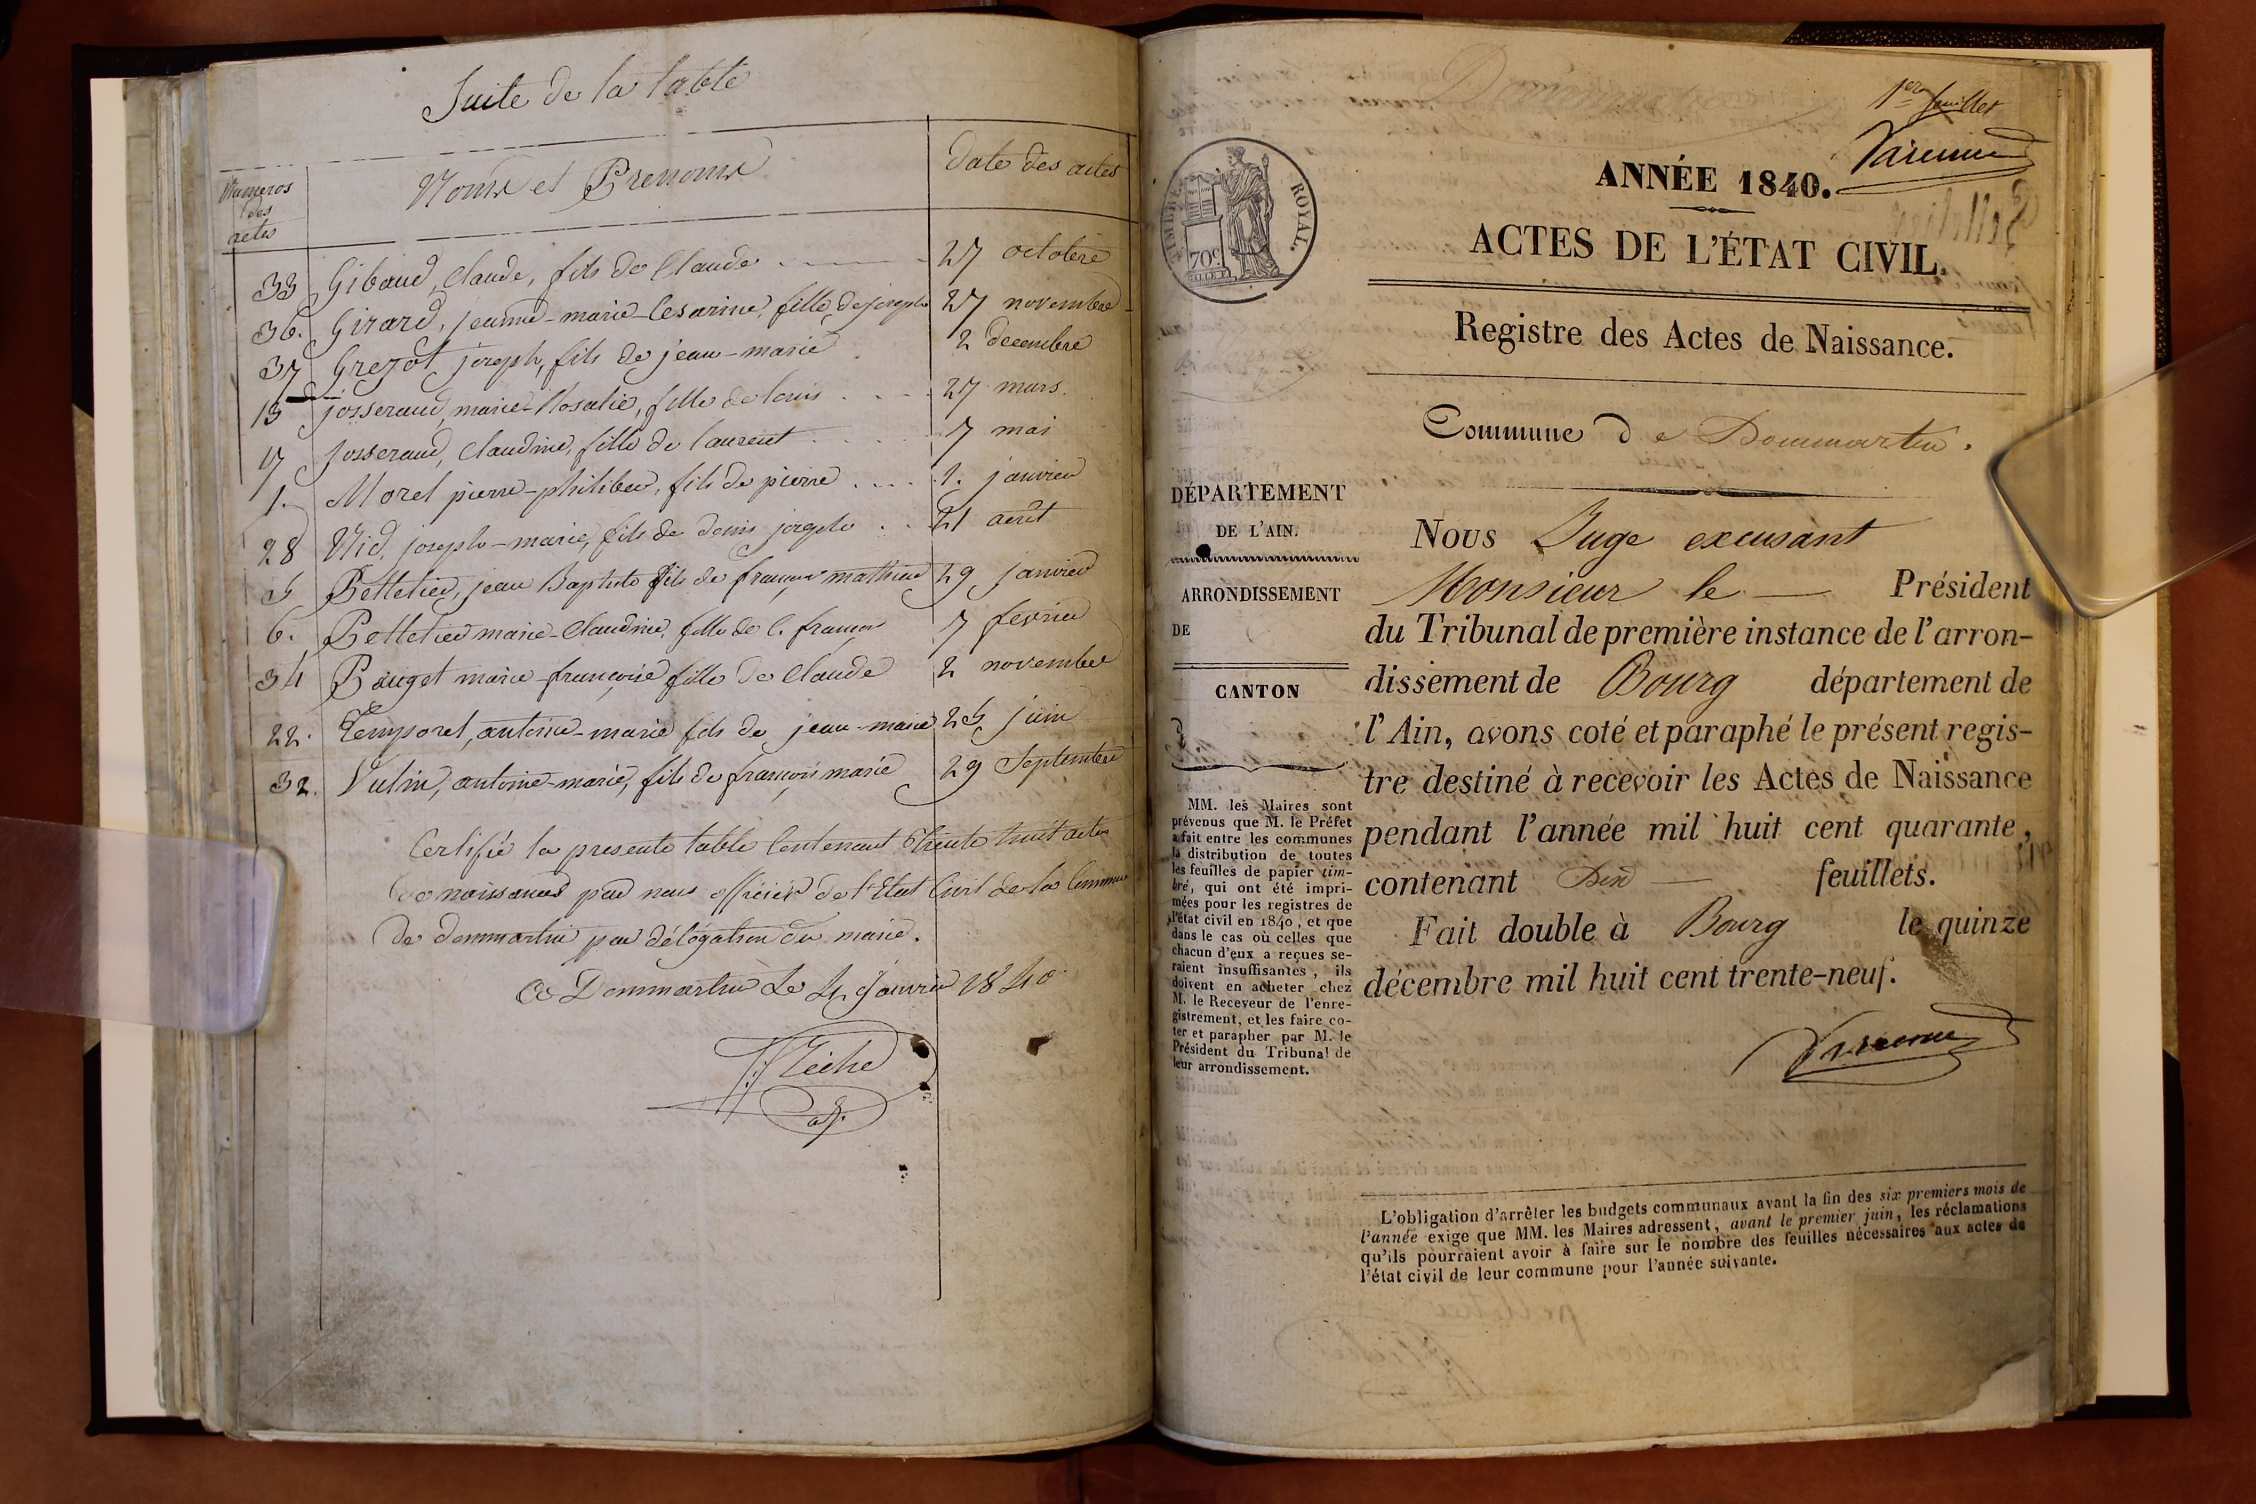 Suite de la table
Numeros des actes
Noms et Prenoms
Date des actes
33 Gibaud, Claude, fils de Claude 27 octobre
36. Girard, jeanne-marie-Cesarine, fille de joseph 27 novembre
37 Grezot joseph, fils de jean-marie 2 decembre
13 josserand, marie-Rosalie, fille de louis 27 mars.
17 Josserand, Claudine, fille de laurent 7 mai
1. Morel pierre-philiber, fils de pierre 1. janvier
28 Nid, joseph-marie, fils de denis joseph 21 aout
5 Pelletier, jean Baptiste fils de françois mathieu 29 janvier
6. Pelletier marie-Claudine, fille de C. françois 7 fevrier
34 Pauget marie-françoise fille de Claude 2 novembre
22. Temporel, antoine-marie fils de jean-marie 25 juin
32. Vulin, antoine-marie, fils de françois marie 29 Septembre
Certifié la presente table Contenant trente huit actes
de naissances par nous officier de l'Etat Civil de la Commune
de dommartin par délégation du maire.
a Dommartin Le 4 Janvier 1840
1er feuillet
TIMBRE ROYAL.
70c
ANNÉE 1840.
ACTES DE L'ÉTAT CIVIL.
Registre des Actes de Naissance.
Commune de Dommartin.
DÉPARTEMENT
DE L'AIN.
ARRONDISSEMENT
DE
CANTON
d
MM. les Maires sont
prévenus que M. le Préfet
a fait entre les communes
la distribution de toutes
les feuilles de papier tim-
bré, qui ont été impri-
mées pour les registres de
l'état civil en 1840, et que
dans le cas où celles que
chacun d'eux a reçues se-
raient insuffisantes, ils
doivent en acheter chez
M. le Receveur de l'enre-
gistrement, et les faire co-
ter et parapher par M. le
Président du Tribunal de
leur arrondissement.
Nous Juge excusant
Monsieur le Président
du Tribunal de première instance de l'arron-
dissement de Bourg département de
l'Ain, avons coté et paraphé le présent regis-
tre destiné à recevoir les Actes de Naissance
pendant l'année mil huit cent quarante,
contenant feuillets.
Fait double à Bourg le quinze
décembre mil huit cent trente-neuf.
L'obligation d'arrêter les budgets communaux avant la fin des six premiers mois de
l'année exige que MM. les Maires adressent, avant le premier juin, les réclamations
qu'ils pourraient avoir à faire sur le nombre des feuilles nécessaires aux actes de
l'état civil de leur commune pour l'année suivante.